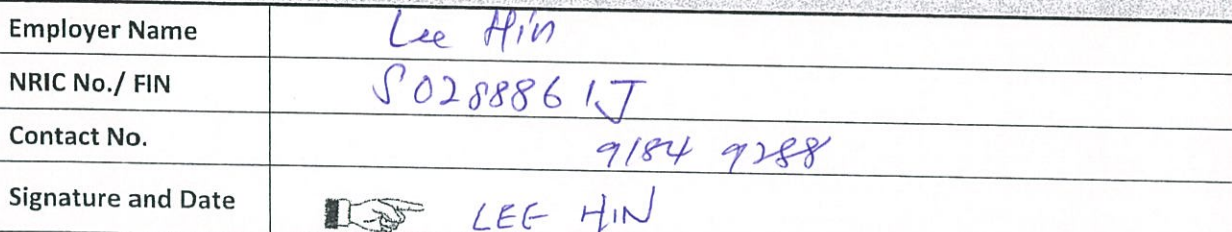 Employer Name Lee Hin
NRIC No./ FIN S0288861J
Contact No. 9184 9288
Signature and Date LEE HIN